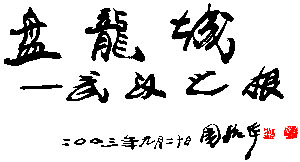 盘龍城
—武汉之根
二〇〇三年九月二十日